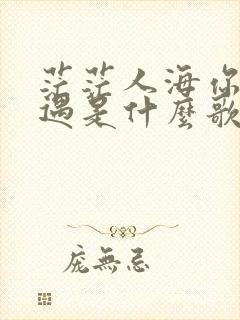 茫茫人海你
遇是什麼歌
庞無忌